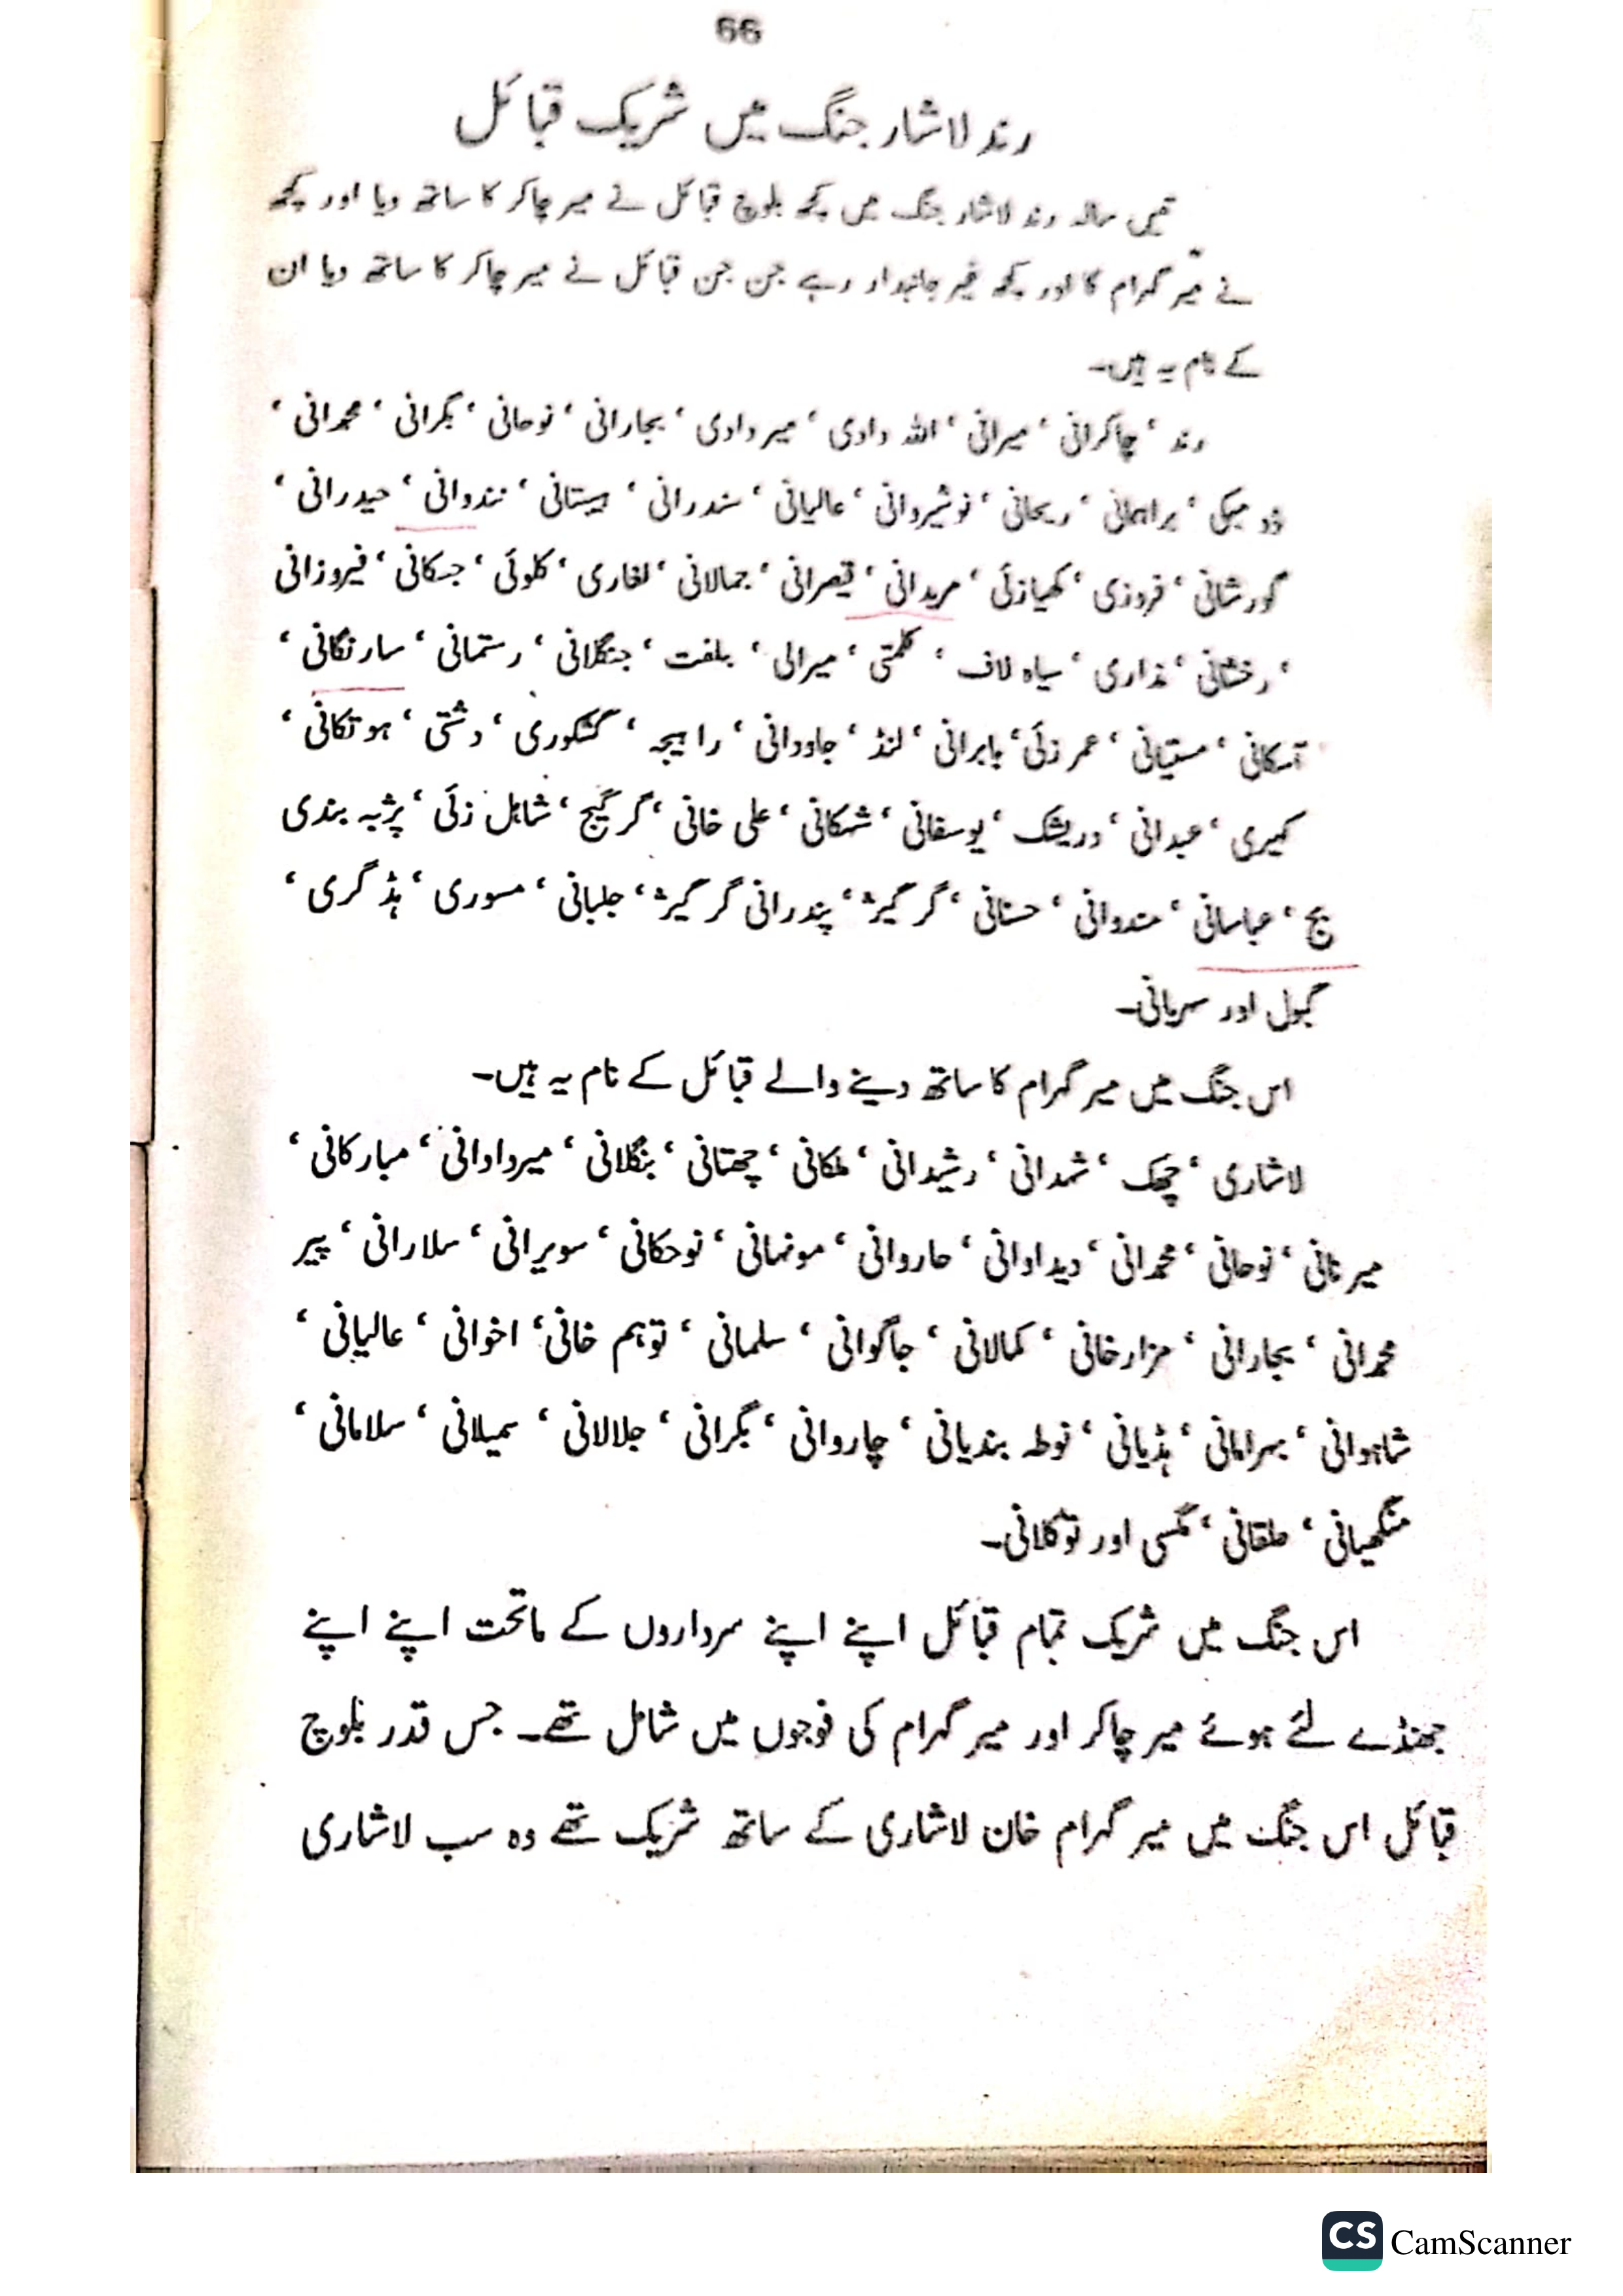 66
رند لاشار جنگ میں شریک قبائل
تیس سالہ رند لاشار جنگ میں کچھ بلوچ قبائل نے میر چاکر کا ساتھ دیا اور کچھ
نے میر گہرام کا اور کچھ غیر جانبدار رہے جن جن قبائل نے میر چاکر کا ساتھ دیا ان
کے نام یہ ہیں۔
رند ‘ چاکرانی ‘ میرانی ‘ اللہ دادی ‘ میر دادی ‘ بجارانی ‘ نوحانی ‘ بگرانی ‘ محمدانی ‘
ڈومبکی ‘ براہمانی ‘ ریحانی ‘ نوشیروانی ‘ عالیانی ‘ سندرانی ‘ بیستانی ‘ نندوانی ‘ حیدرانی ‘
گورشانی ‘ فروزی ‘ کھیازئی ‘ مریدانی ‘ قیصرانی ‘ جمالانی ‘ لغاری ‘ کلوئی ‘ جسکانی ‘ فیروزانی
‘ رخشانی ‘ نذاری ‘ سیاہ لاف ‘ کلمتی ‘ میرالی ‘ بلفت ‘ جنگلانی ‘ رستمانی ‘ سارنگانی ‘
آسکانی ‘ مستیانی ‘ عمر زئی ‘ بابرانی ‘ لنڈ ‘ جاودانی ‘ راہیجہ ‘ گشکوری ‘ دشتی ‘ ہوتکانی ‘
کہیری ‘ عبدانی ‘ دریشک ‘ یوسفانی ‘ شہکانی ‘ علی خانی ‘ گرگیج ‘ شاہل زئی ‘ پژبہ بندی
بج ‘ عباسانی ‘ مندوانی ‘ حسنانی ‘ گرگیژ ‘ پندرانی گرگیژ ‘ جلبانی ‘ مسوری ‘ ہڈ گری ‘
گبول اور سہریانی۔
اس جنگ میں میر گہرام کا ساتھ دینے والے قبائل کے نام یہ ہیں۔
لاشاری ‘ چھک ‘ شہدانی ‘ رشیدانی ‘ ملکانی ‘ چھتانی ‘ بنگلانی ‘ میردادانی ‘ مبارکانی ‘
میرنانی ‘ نوحانی ‘ محمدانی ‘ دیدادانی ‘ حاروانی ‘ مونہانی ‘ نوحکانی ‘ سویرانی ‘ سلارانی ‘ پیر
محمدانی ‘ بجارانی ‘ مزارخانی ‘ کمالانی ‘ جاگوانی ‘ سلمانی ‘ توہم خانی ‘ اخوانی ‘ عالیانی ‘
شاہوانی ‘ بہرامانی ‘ ہڈیانی ‘ نوطہ بندیانی ‘ چاروانی ‘ بگرانی ‘ جلالانی ‘ سمیلانی ‘ سلامانی ‘
منگھیانی ‘ ملقانی ‘ مگسی اور توکلانی۔
اس جنگ میں شریک تمام قبائل اپنے اپنے سرداروں کے ماتحت اپنے اپنے
جھنڈے لئے ہوئے میر چاکر اور میر گہرام کی فوجوں میں شامل تھے۔ جس قدر بلوچ
قبائل اس جنگ میں میر گہرام خان لاشاری کے ساتھ شریک تھے وہ سب لاشاری
CS CamScanner